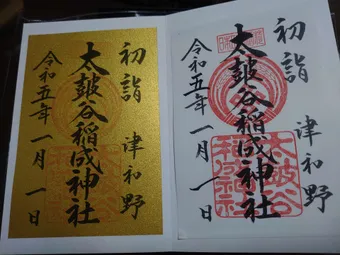 初詣
津和野
太皷谷稲成神社
令和五年一月一日
初詣
津和野
太皷谷稲成神社
令和五年一月一日